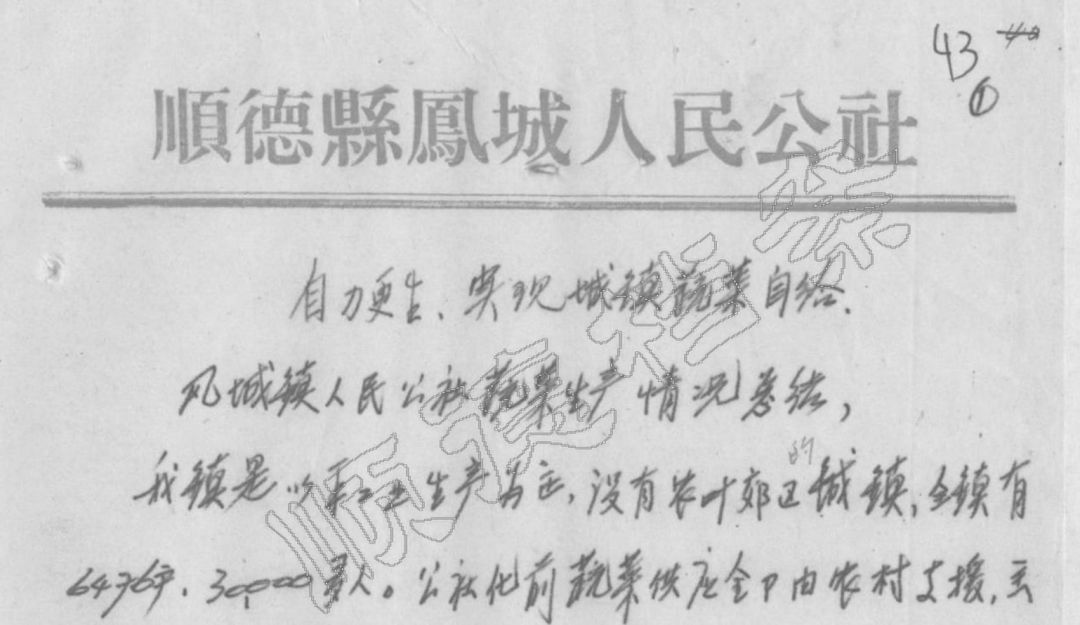 43 40
①
順德縣鳳城人民公社
自力更生、実现城镇蔬菜自给.
凤城镇人民公社蔬菜生产情况总结,
我镇是以手工业生产为主,没有农叶郊区的城镇,全镇有
6476户.30,000多人。公社化前蔬菜供应全卩由农村支援,
顺德档案